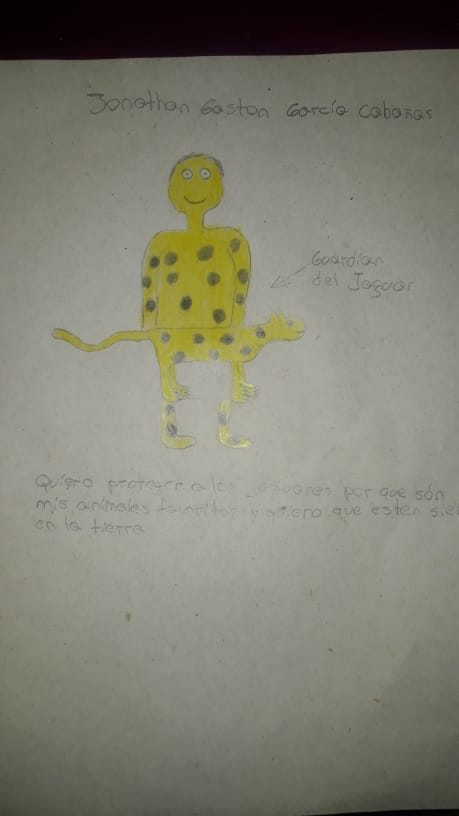 Jonathan Gaston García Cabañas
Guardian
del Jaguar
Quiero proteger a los jaguares por que són
mis animales favoritos y quiero que esten sie
en la tierra